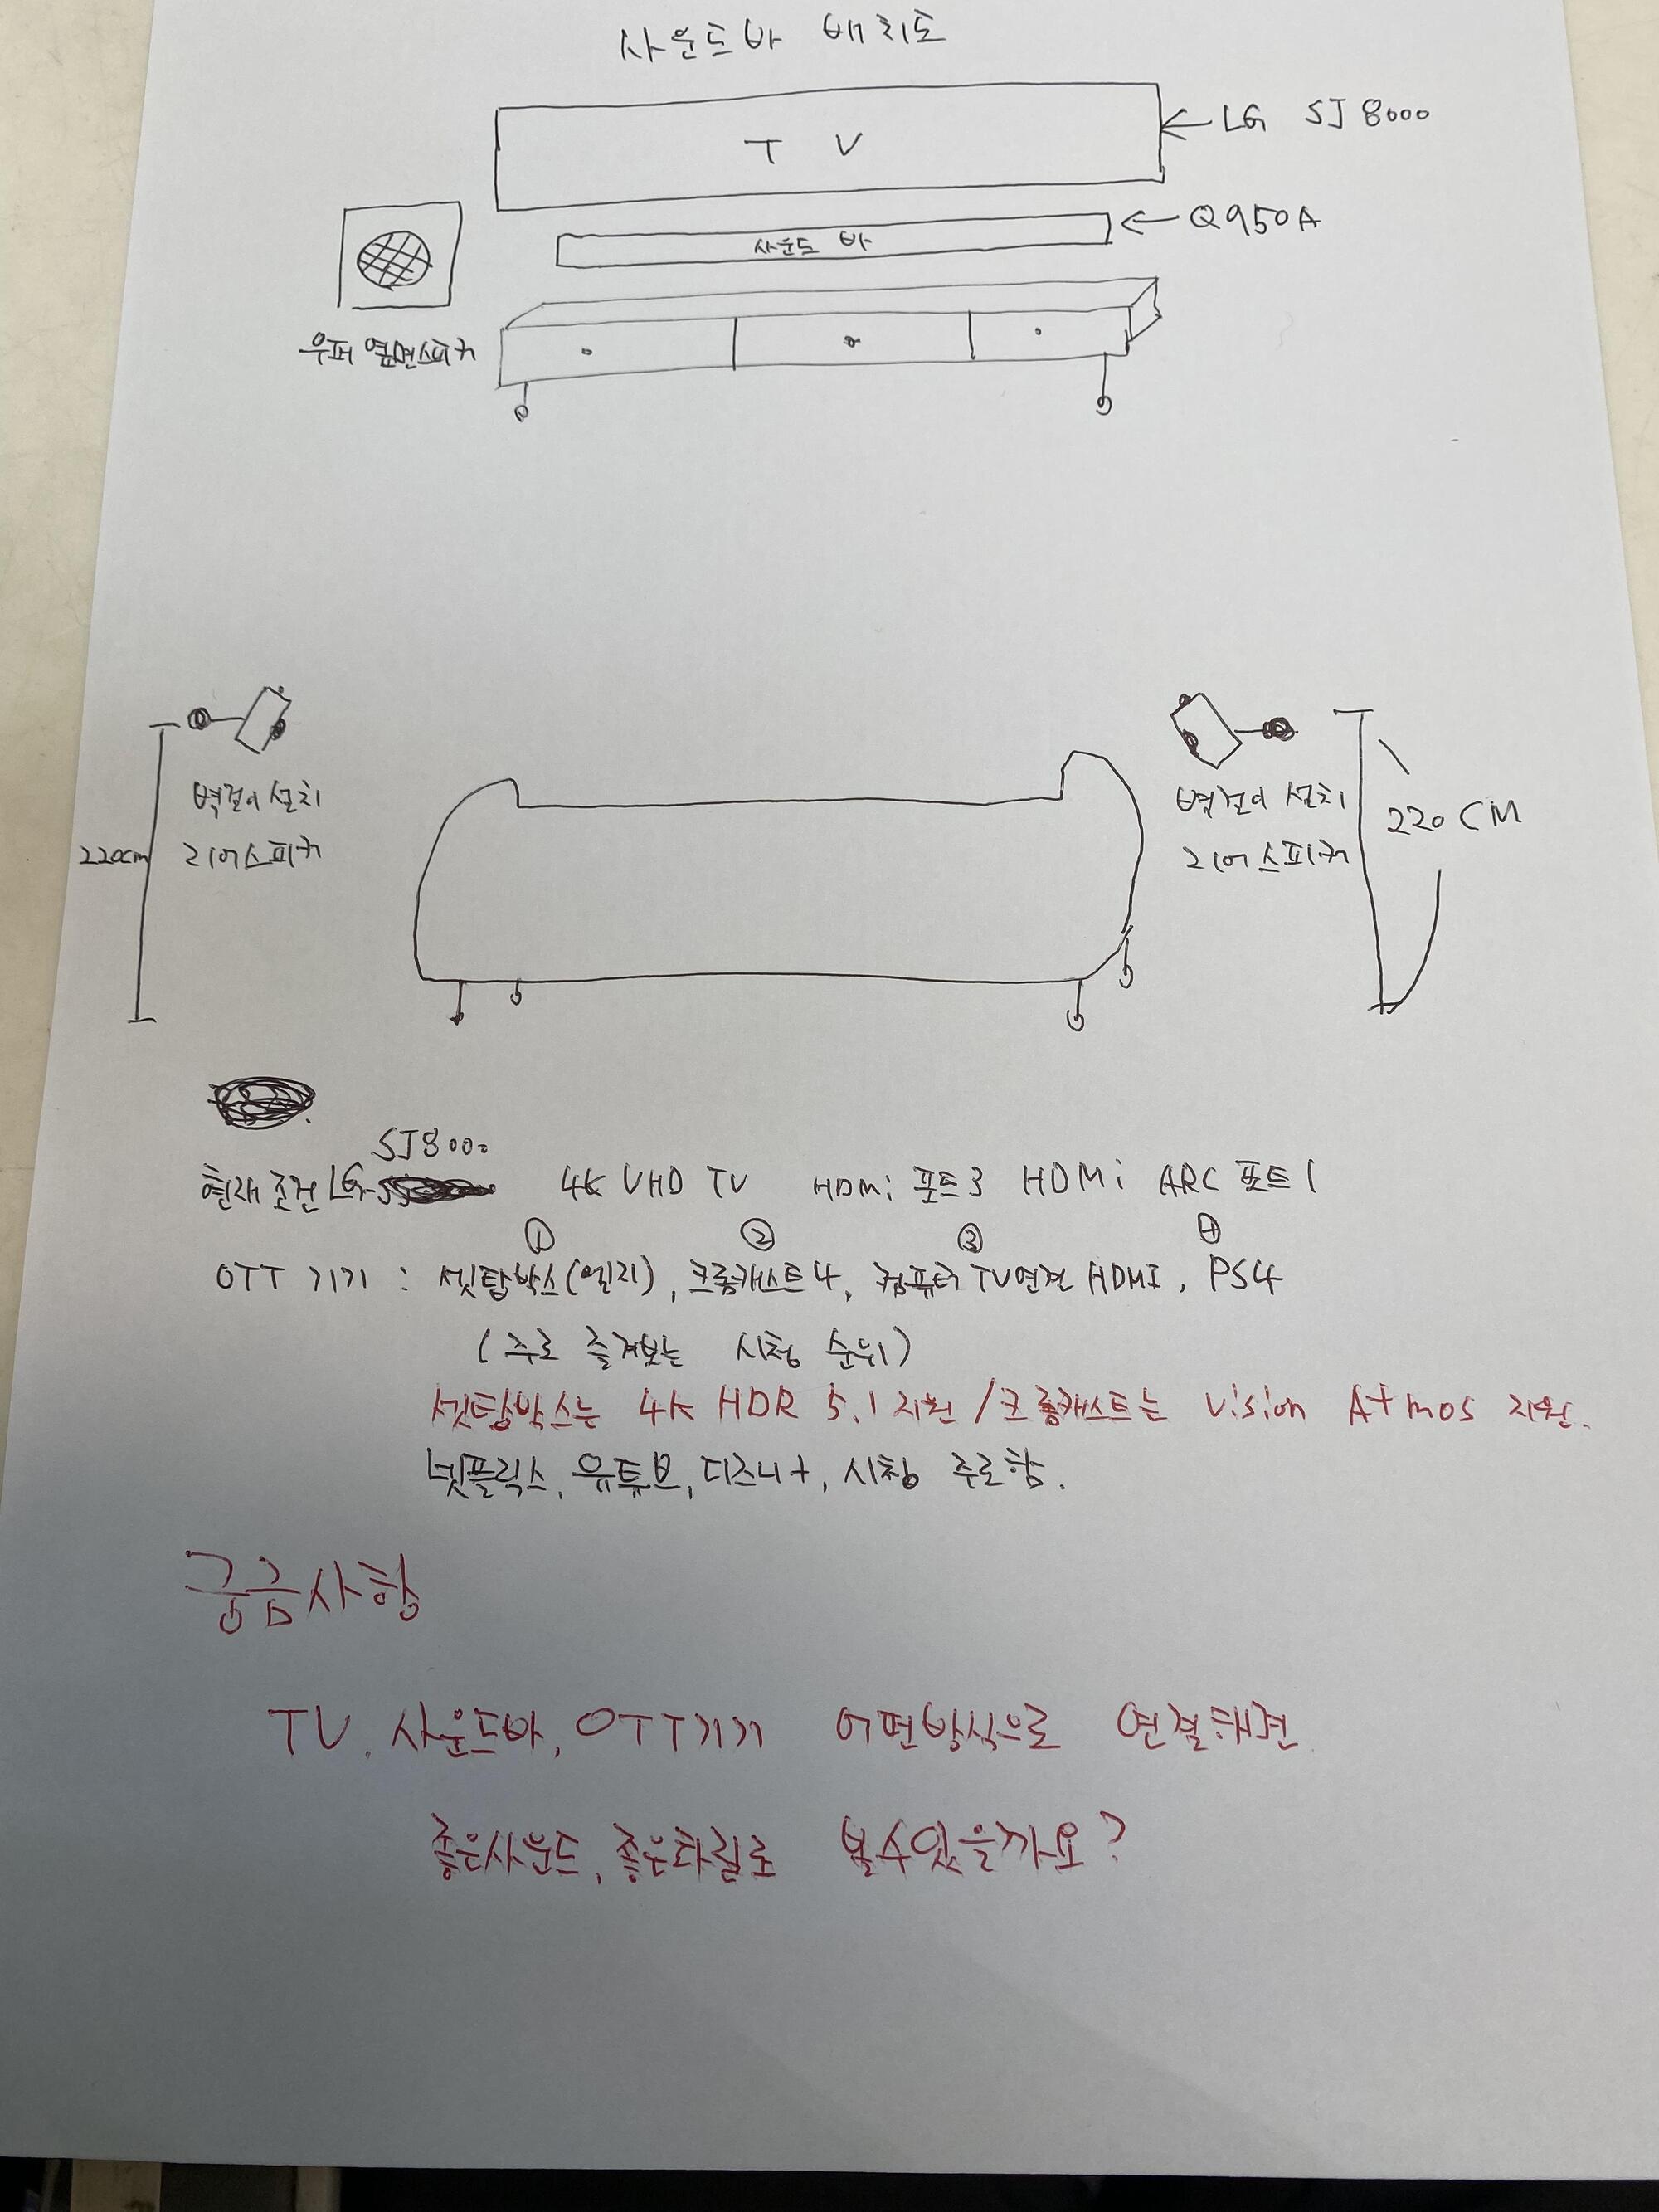 사운드바 배치도
T V
LG SJ8000
사운드 바
Q950A
우퍼 옆면스피커
220cm
벽걸이 설치
리어스피커
벽걸이 설치
리어스피커
220CM
SJ8000
현재조건 LG 4K UHD TV HDMi 포트3 HDMi ARC 포트1
① ② ③ ④
OTT 기기 : 셋탑박스(엘지), 크롬캐스트4, 컴퓨터 TV연결 HDMI, PS4
(주로 즐겨보는 시청 순위)
셋탑박스는 4K HDR 5.1지원 / 크롬캐스트는 Vision Atmos 지원.
넷플릭스, 유튜브, 디즈니+, 시청 주로함.
궁금사항
TV. 사운드바, OTT기기 어떤방식으로 연결해면
좋은사운드, 좋은화질로 볼수있을까요?